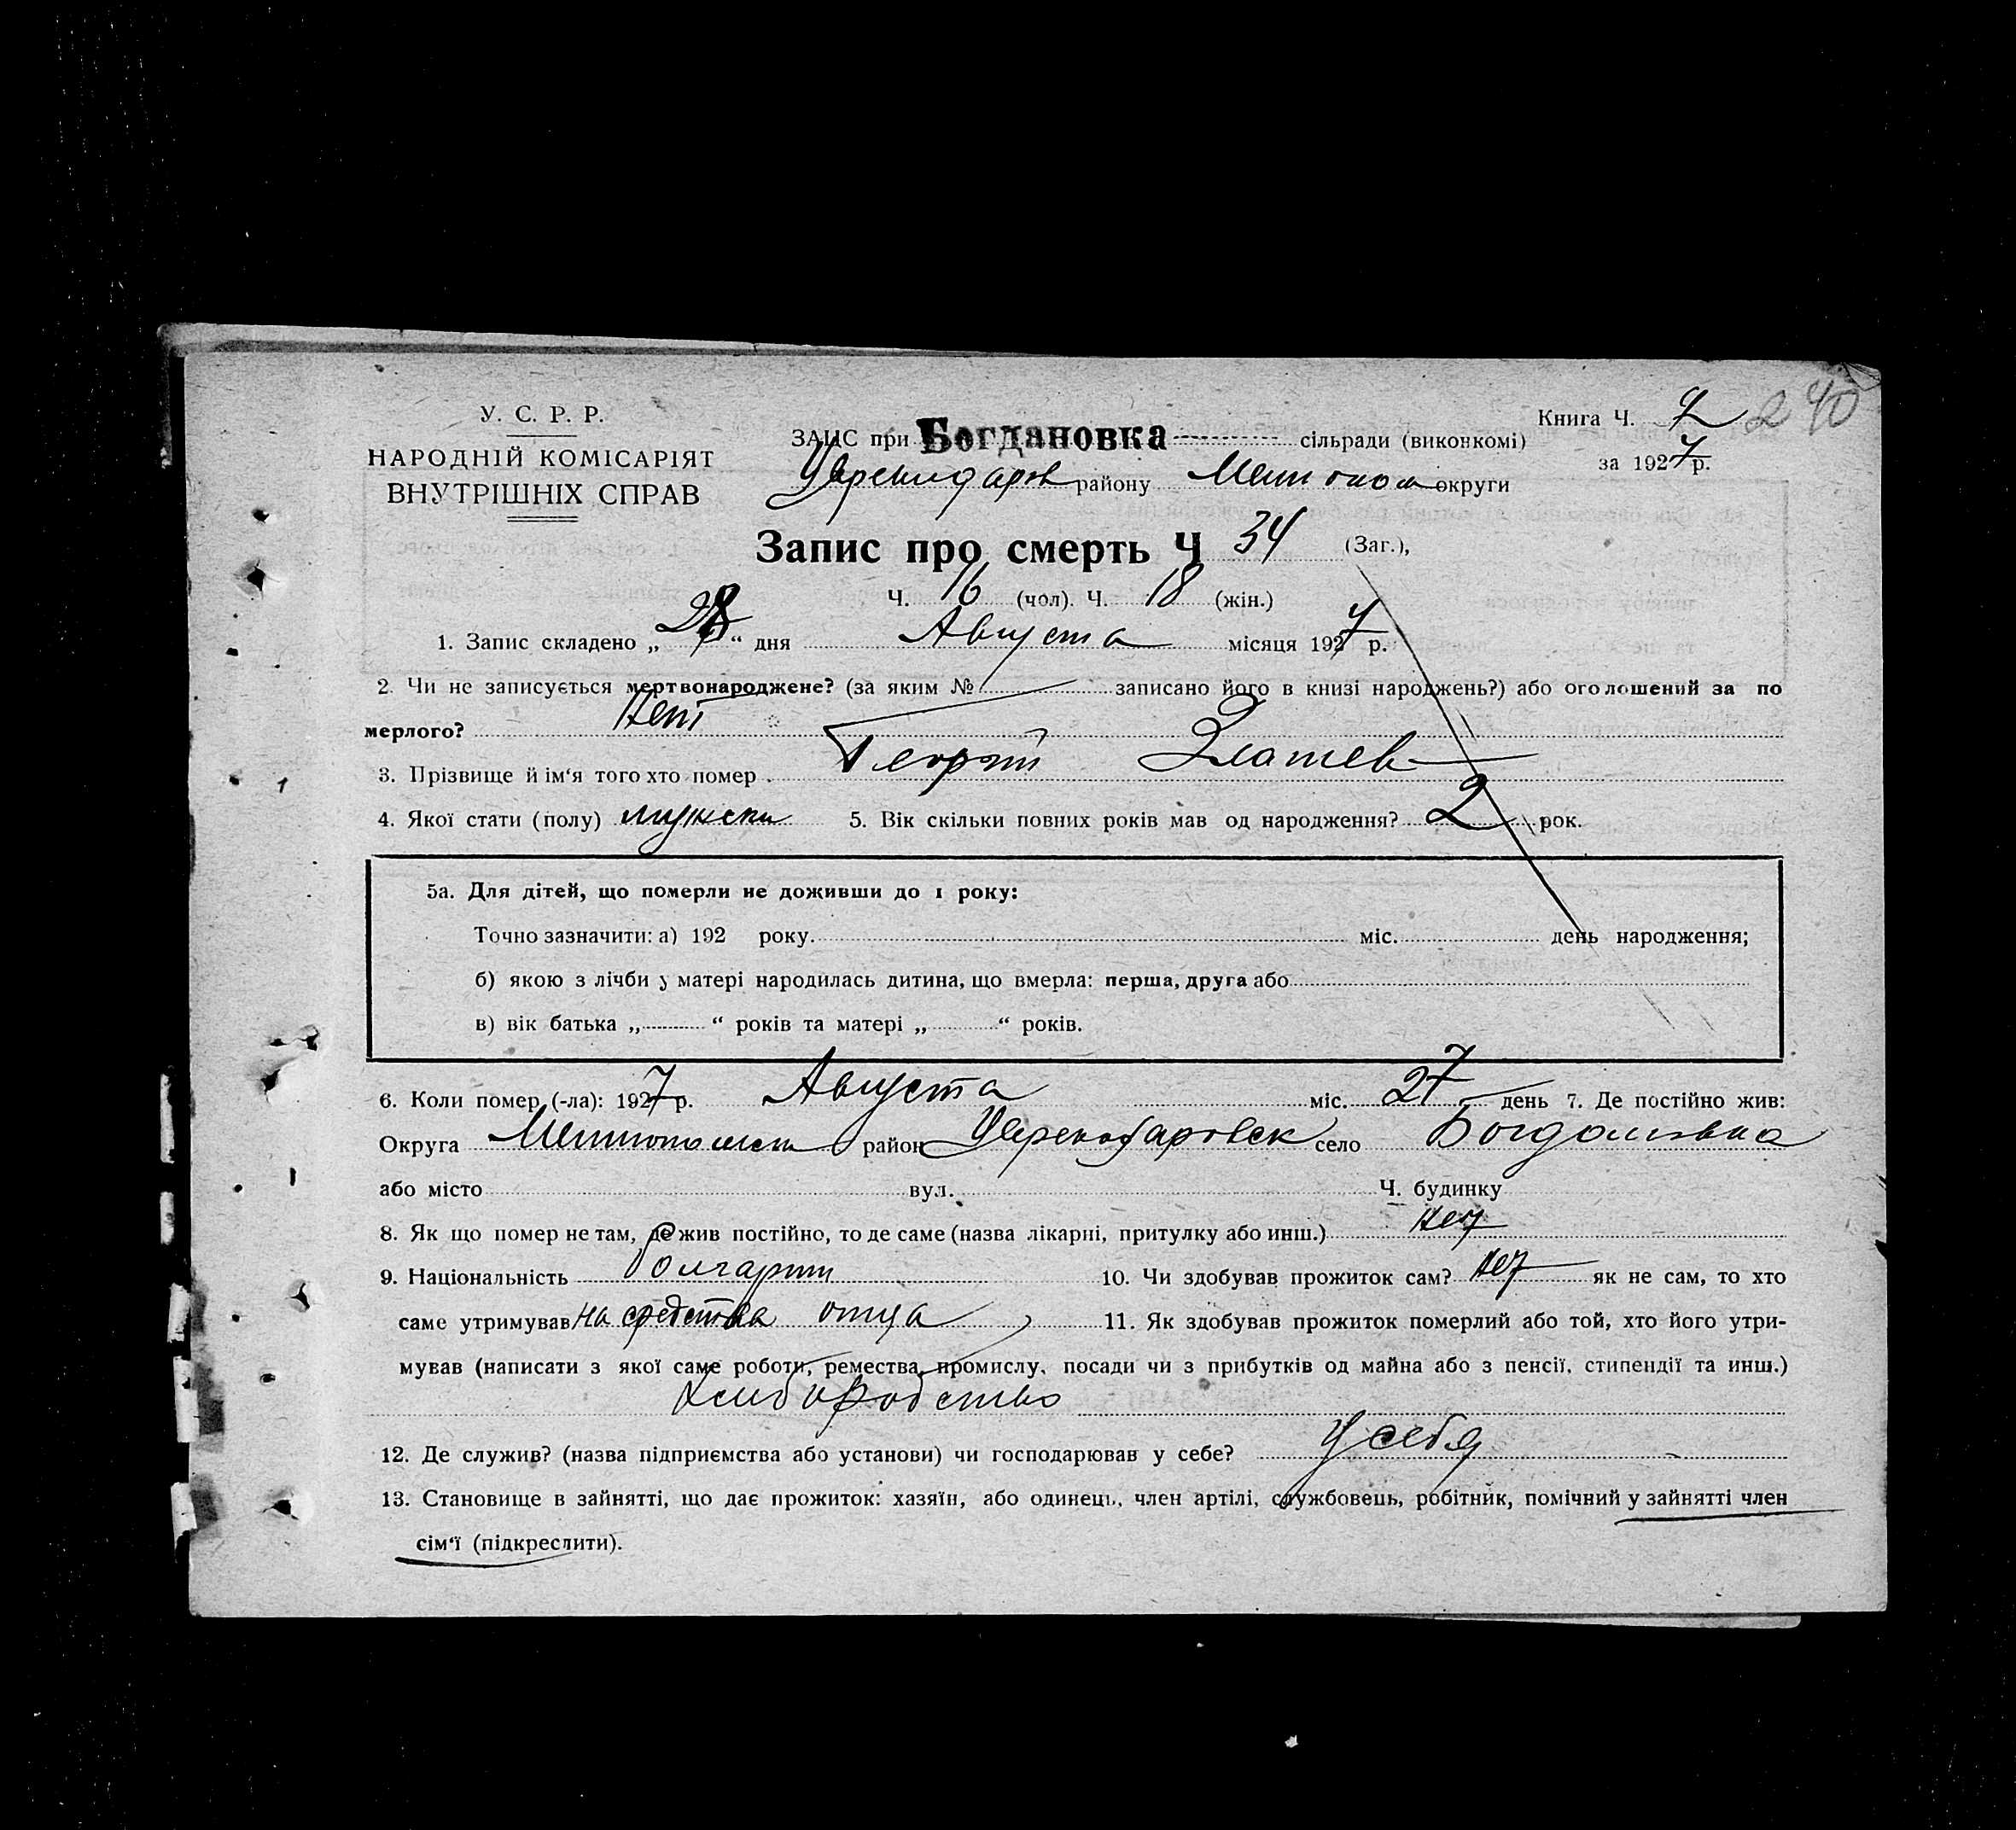 240
У. С. Р. Р.
НАРОДНІЙ КОМІСАРІЯТ
ВНУТРІШНІХ СПРАВ
Книга Ч.
за 1927 р.
ЗАГС при Богдановка сільради (виконкомі)
району округи
Запис про смерть Ч 34 (Заг.),
Ч. 16 (чол). Ч. 18 (жін.)
1. Запис складено „28“ дня Августа місяця 1927 р.
2. Чи не записується мертвонароджене? (за яким № записано його в книзі народжень?) або оголошений за по
мерлого? Нет
3. Прізвище й ім‘я того хто помер Георгій Златев
4. Якої стати (полу) мужски 5. Вік скільки повних років мав од народження? 2 рок.
5а. Для дітей, що померли не доживши до 1 року:
Точно зазначити: а) 192 року. міс. день народження;
б) якою з лічби у матері народилась дитина, що вмерла: перша, друга або
в) вік батька „ “ років та матері „ “ років.
6. Коли помер (-ла): 1927 р. Августа міс. 27 день 7. Де постійно жив:
Округа район село Богдановка
або місто вул. Ч. будинку
8. Як що помер не там, де жив постійно, то де саме (назва лікарні, притулку або инш.) Нет
9. Національність болгарин 10. Чи здобував прожиток сам? Нет як не сам, то хто
саме утримував на средства отца 11. Як здобував прожиток померлий або той, хто його утри-
мував (написати з якої саме роботи, ремества, промислу, посади чи з прибутків од майна або з пенсії, стипендії та инш.)
12. Де служив? (назва підприємства або установи) чи господарював у себе? У себя
13. Становище в зайнятті, що дає прожиток: хазяїн, або одинець, член артілі, службовець, робітник, помічний у зайнятті член
сім‘ї (підкреслити).